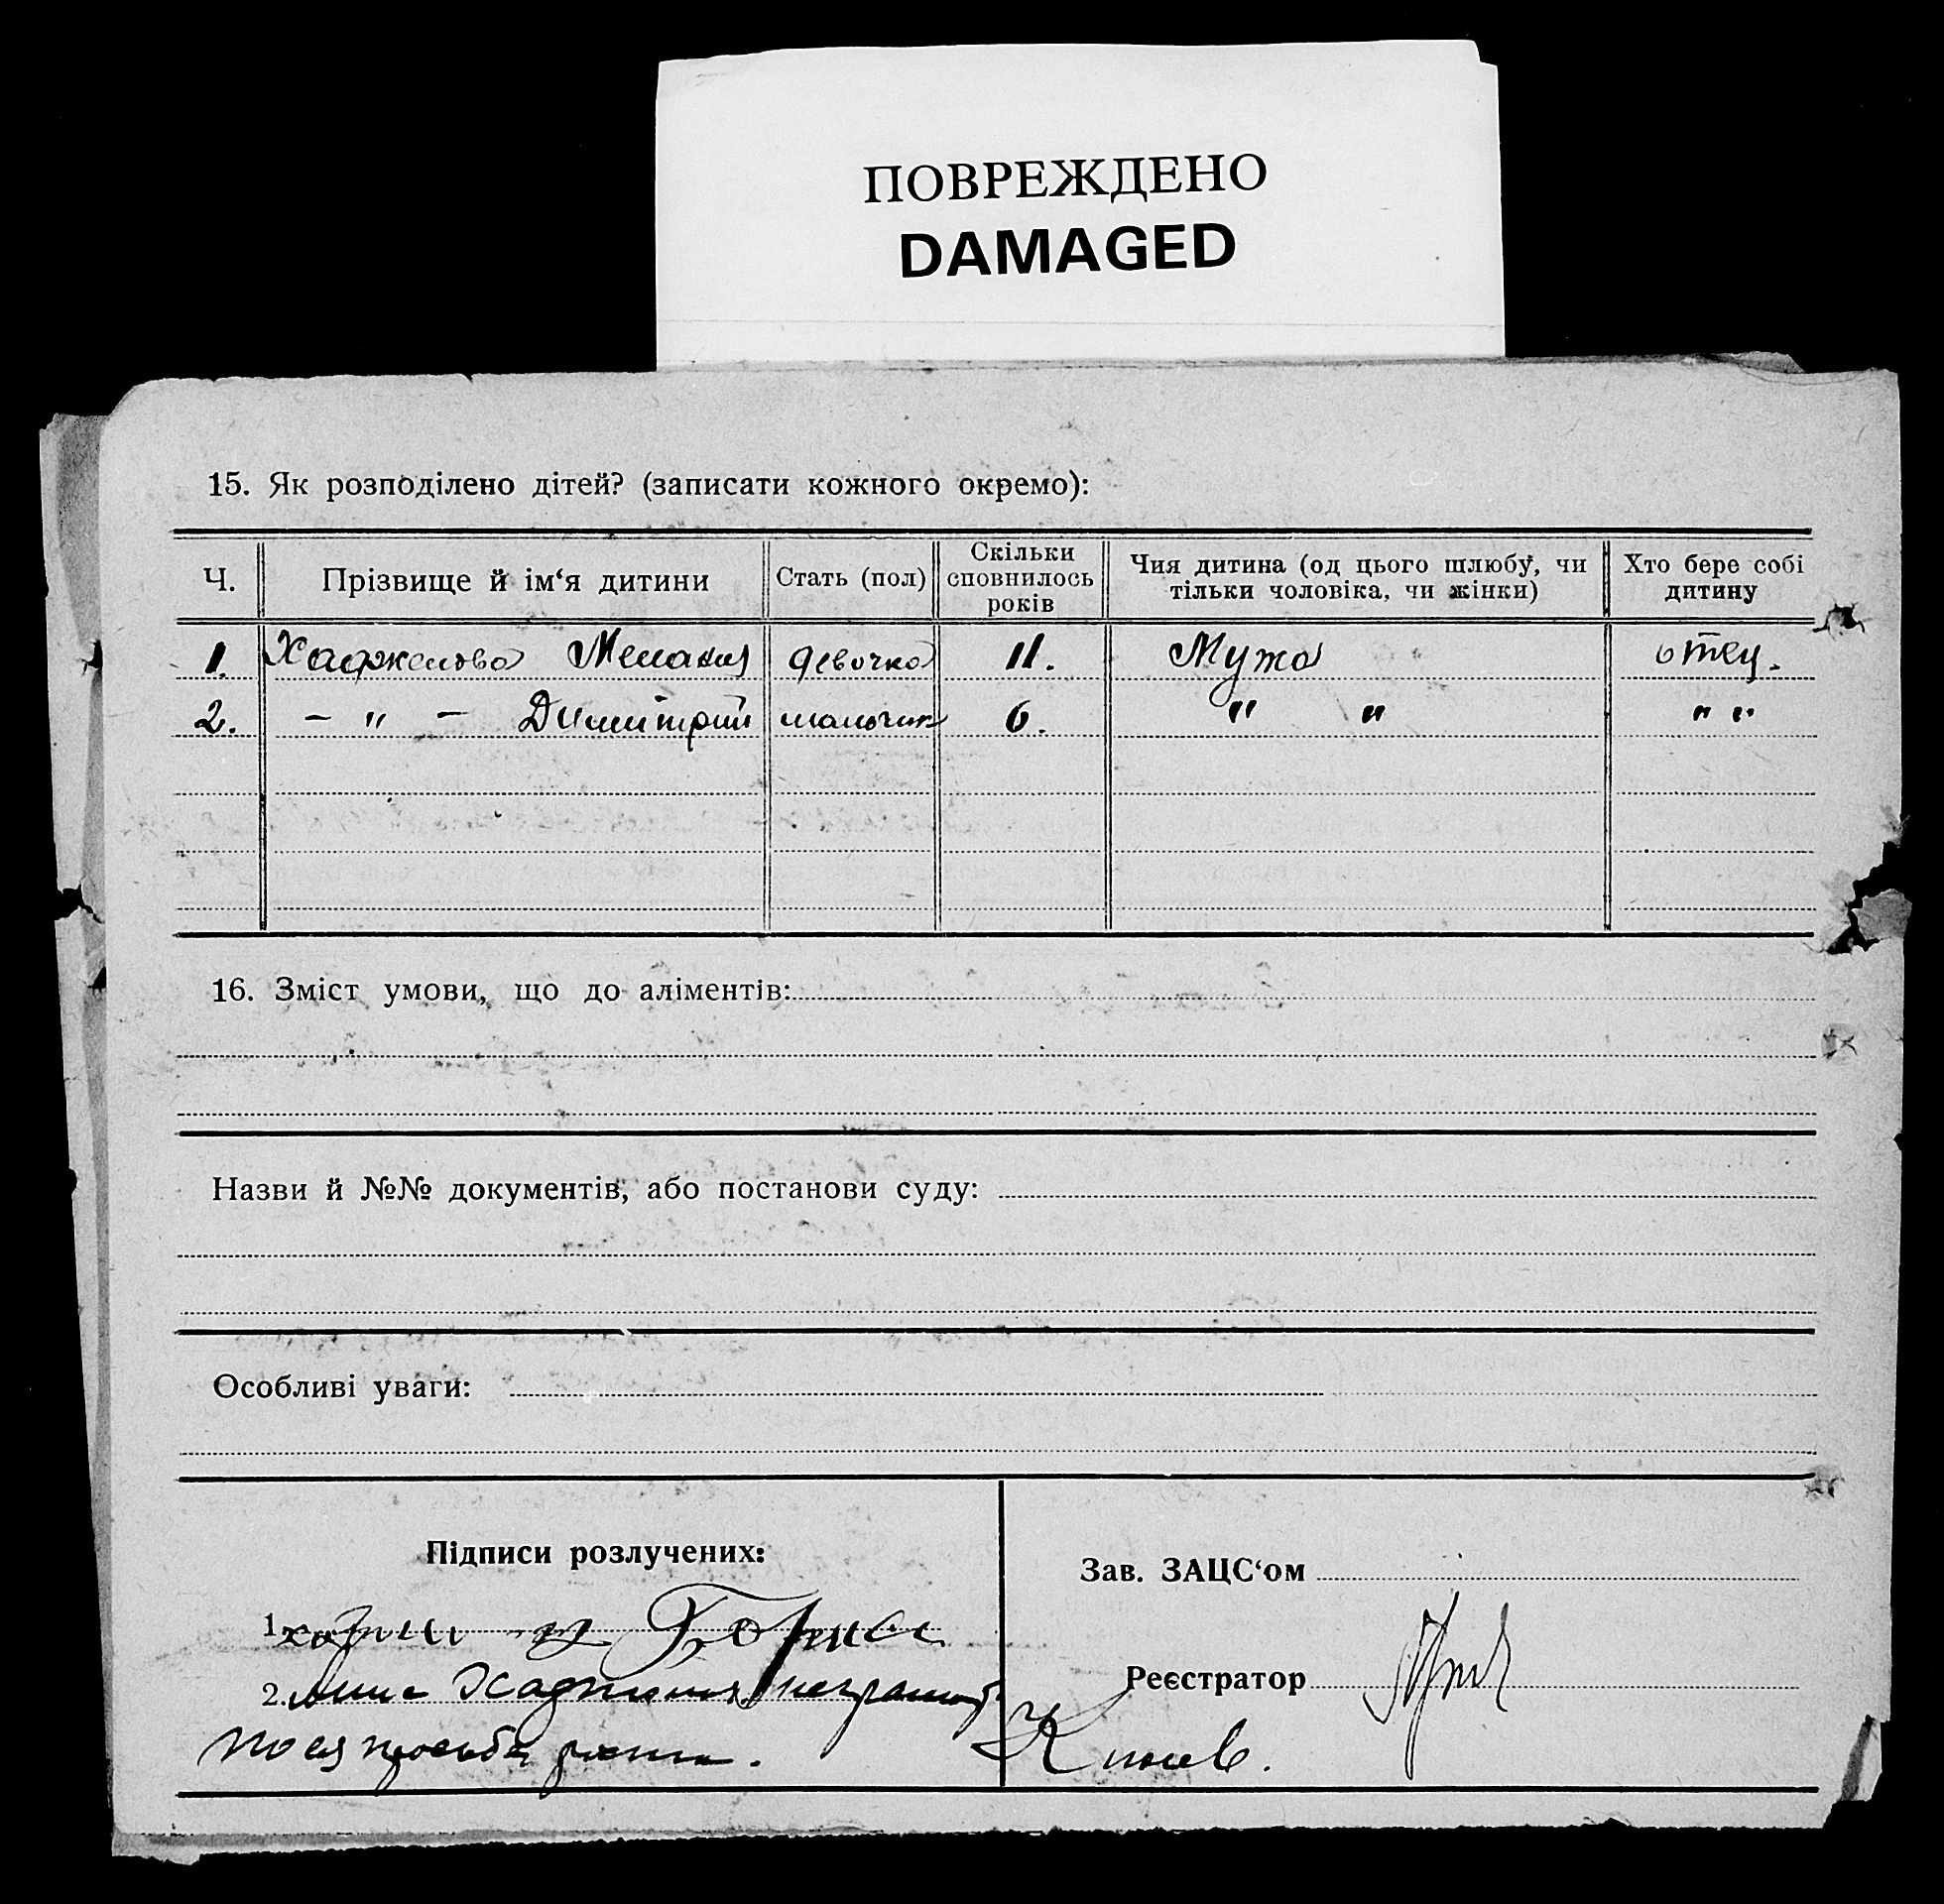 ПОВРЕЖДЕНО
DAMAGED
15. Як розподілено дітей? (записати кожного окремо):
Ч. Прізвище й ім‘я дитини Стать (пол) Скільки сповнилось років Чия дитина (од цього шлюбу, чи тільки чоловіка, чи жінки) Хто бере собі дитину
1. девочка 11. Мужа отец.
2. — " — Димитрий мальчик 6. " " " "
16. Зміст умови, що до аліментів:
Назви й №№ документів, або постанови суду:
Особливі уваги:
Підписи розлучених:
Зав. ЗАЦС‘ом
1.
Реєстратор
2. неграмот
по ея просьбе